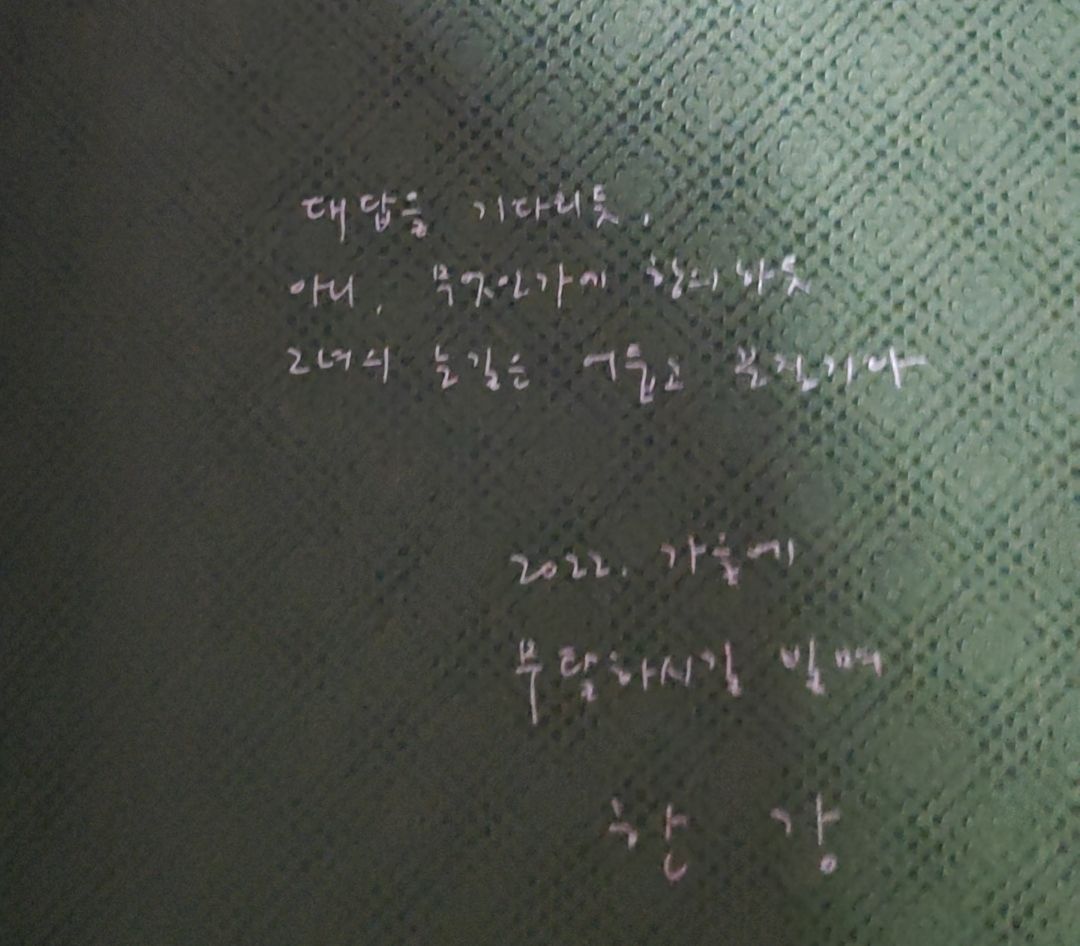 대답을 기다리듯,
아니, 무엇인가에 항의하듯
그녀의 눈길은 어둡고 끈질기다
2022. 가을에
무탈하시길 빌며
한 강